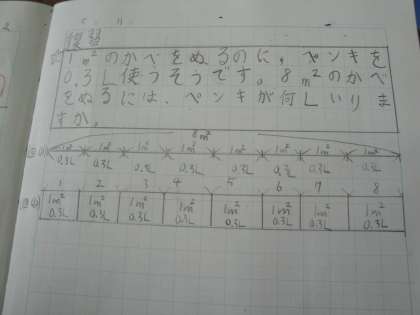 復習
1m²のかべをぬるのに、ペンキを
0.3L使うそうです。8m²のかべ
をぬるには、ペンキが何Lいりま
すか。
8m²
1m² 1m² 1m² 1m² 1m² 1m² 1m² 1m²
0.3L 0.3L 0.3L 0.3L 0.3L 0.3L 0.3L 0.3L
1 2 3 4 5 6 7 8
1m² 1m² 1m² 1m² 1m² 1m² 1m² 1m²
0.3L 0.3L 0.3L 0.3L 0.3L 0.3L 0.3L 0.3L